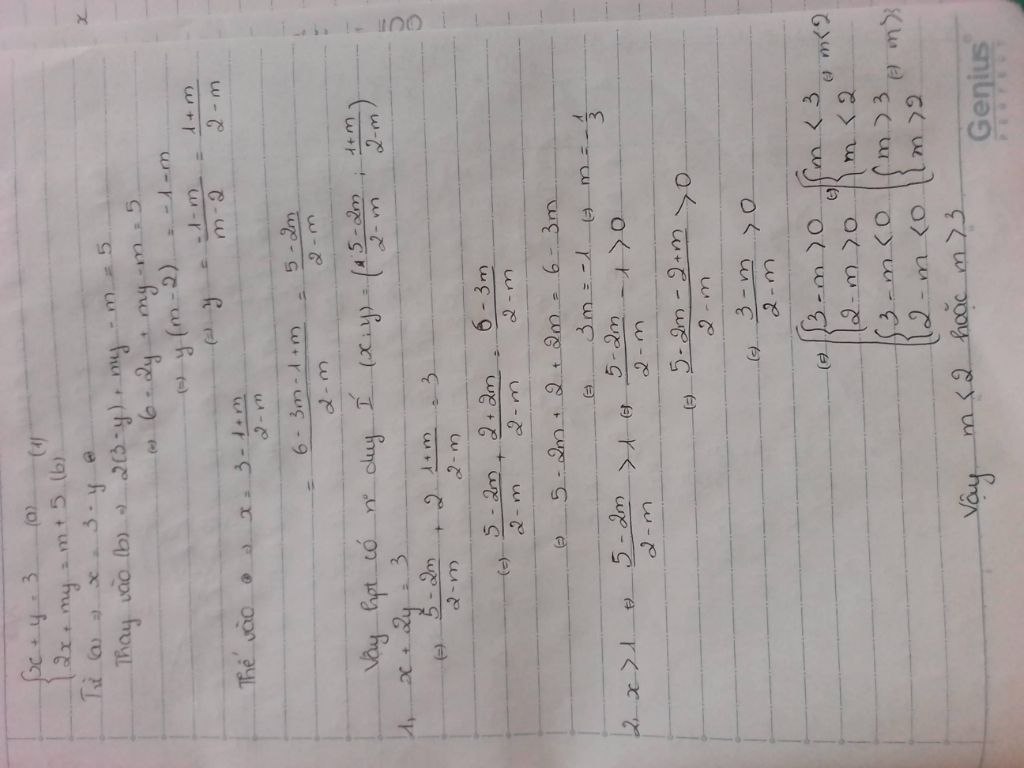 { x + y = 3 (a)
{ 2x + my = m + 5 (b) (1)
Từ (a) ⇒ x = 3 - y
Thay vào (b) ⇒ 2(3-y) + my - m = 5
⇔ 6 - 2y + my - m = 5
⇔ y(m-2) = -1-m
⇔ y = -1-m / m-2 = 1+m / 2-m
Thế vào ⇒ x = 3 - 1+m / 2-m
= 6 - 3m - 1+m / 2-m = 5-2m / 2-m
Vậy hpt có n° duy I (x+y) = (5-2m / 2-m ; 1+m / 2-m)
1, x + 2y = 3
⇔ 5-2m / 2-m + 2 1+m / 2-m = 3
⇔ 5-2m / 2-m + 2+2m / 2-m = 6-3m / 2-m
⇔ 5-2m + 2 + 2m = 6-3m
⇔ 3m = -1 ⇔ m = -1/3
2, x > 1 ⇔ 5-2m / 2-m > 1 ⇔ 5-2m / 2-m - 1 > 0
⇔ 5-2m-2+m / 2-m > 0
⇔ 3-m / 2-m > 0
⇔ [ { 3-m > 0 ⇔ [ { m < 3 ⇔ m < 2
{ 2-m > 0 { m < 2
{ 3-m < 0 { m > 3 ⇔ m > 3
{ 2-m < 0 { m > 2
Vậy m < 2 hoặc m > 3
Genius